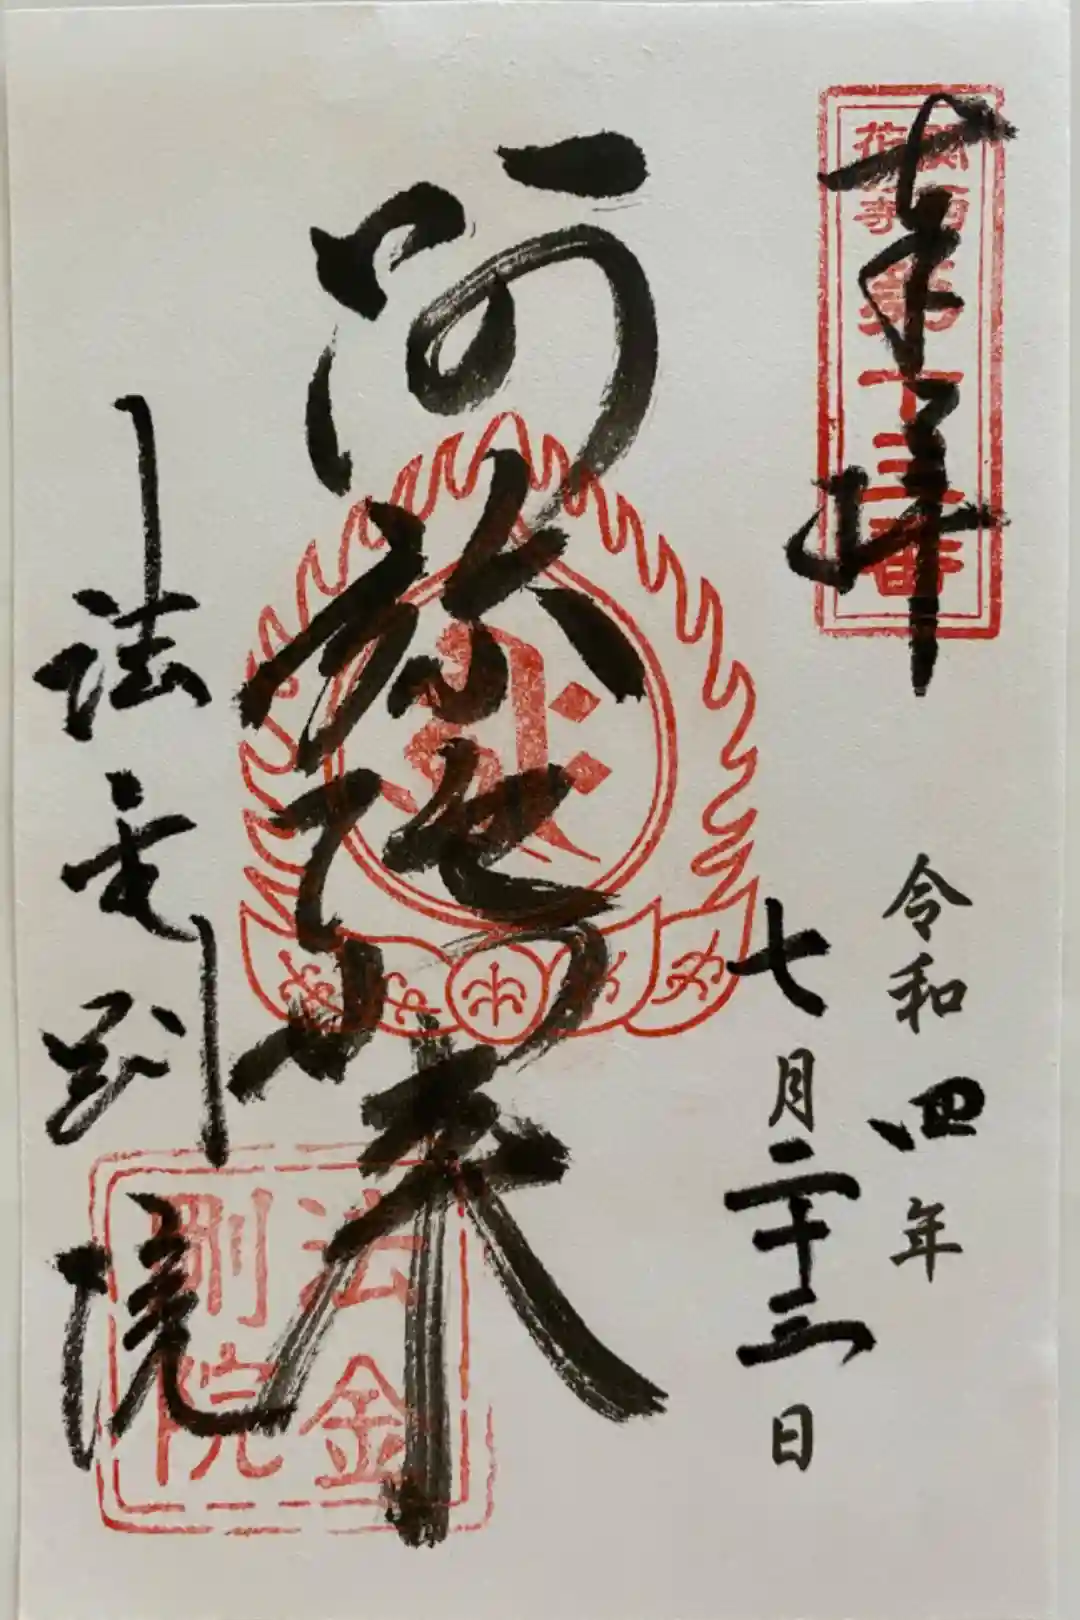 奉拝
関西
花の寺
第十三番
令和四年
七月二十三日
阿弥陀如来
法金剛院
法金
剛院